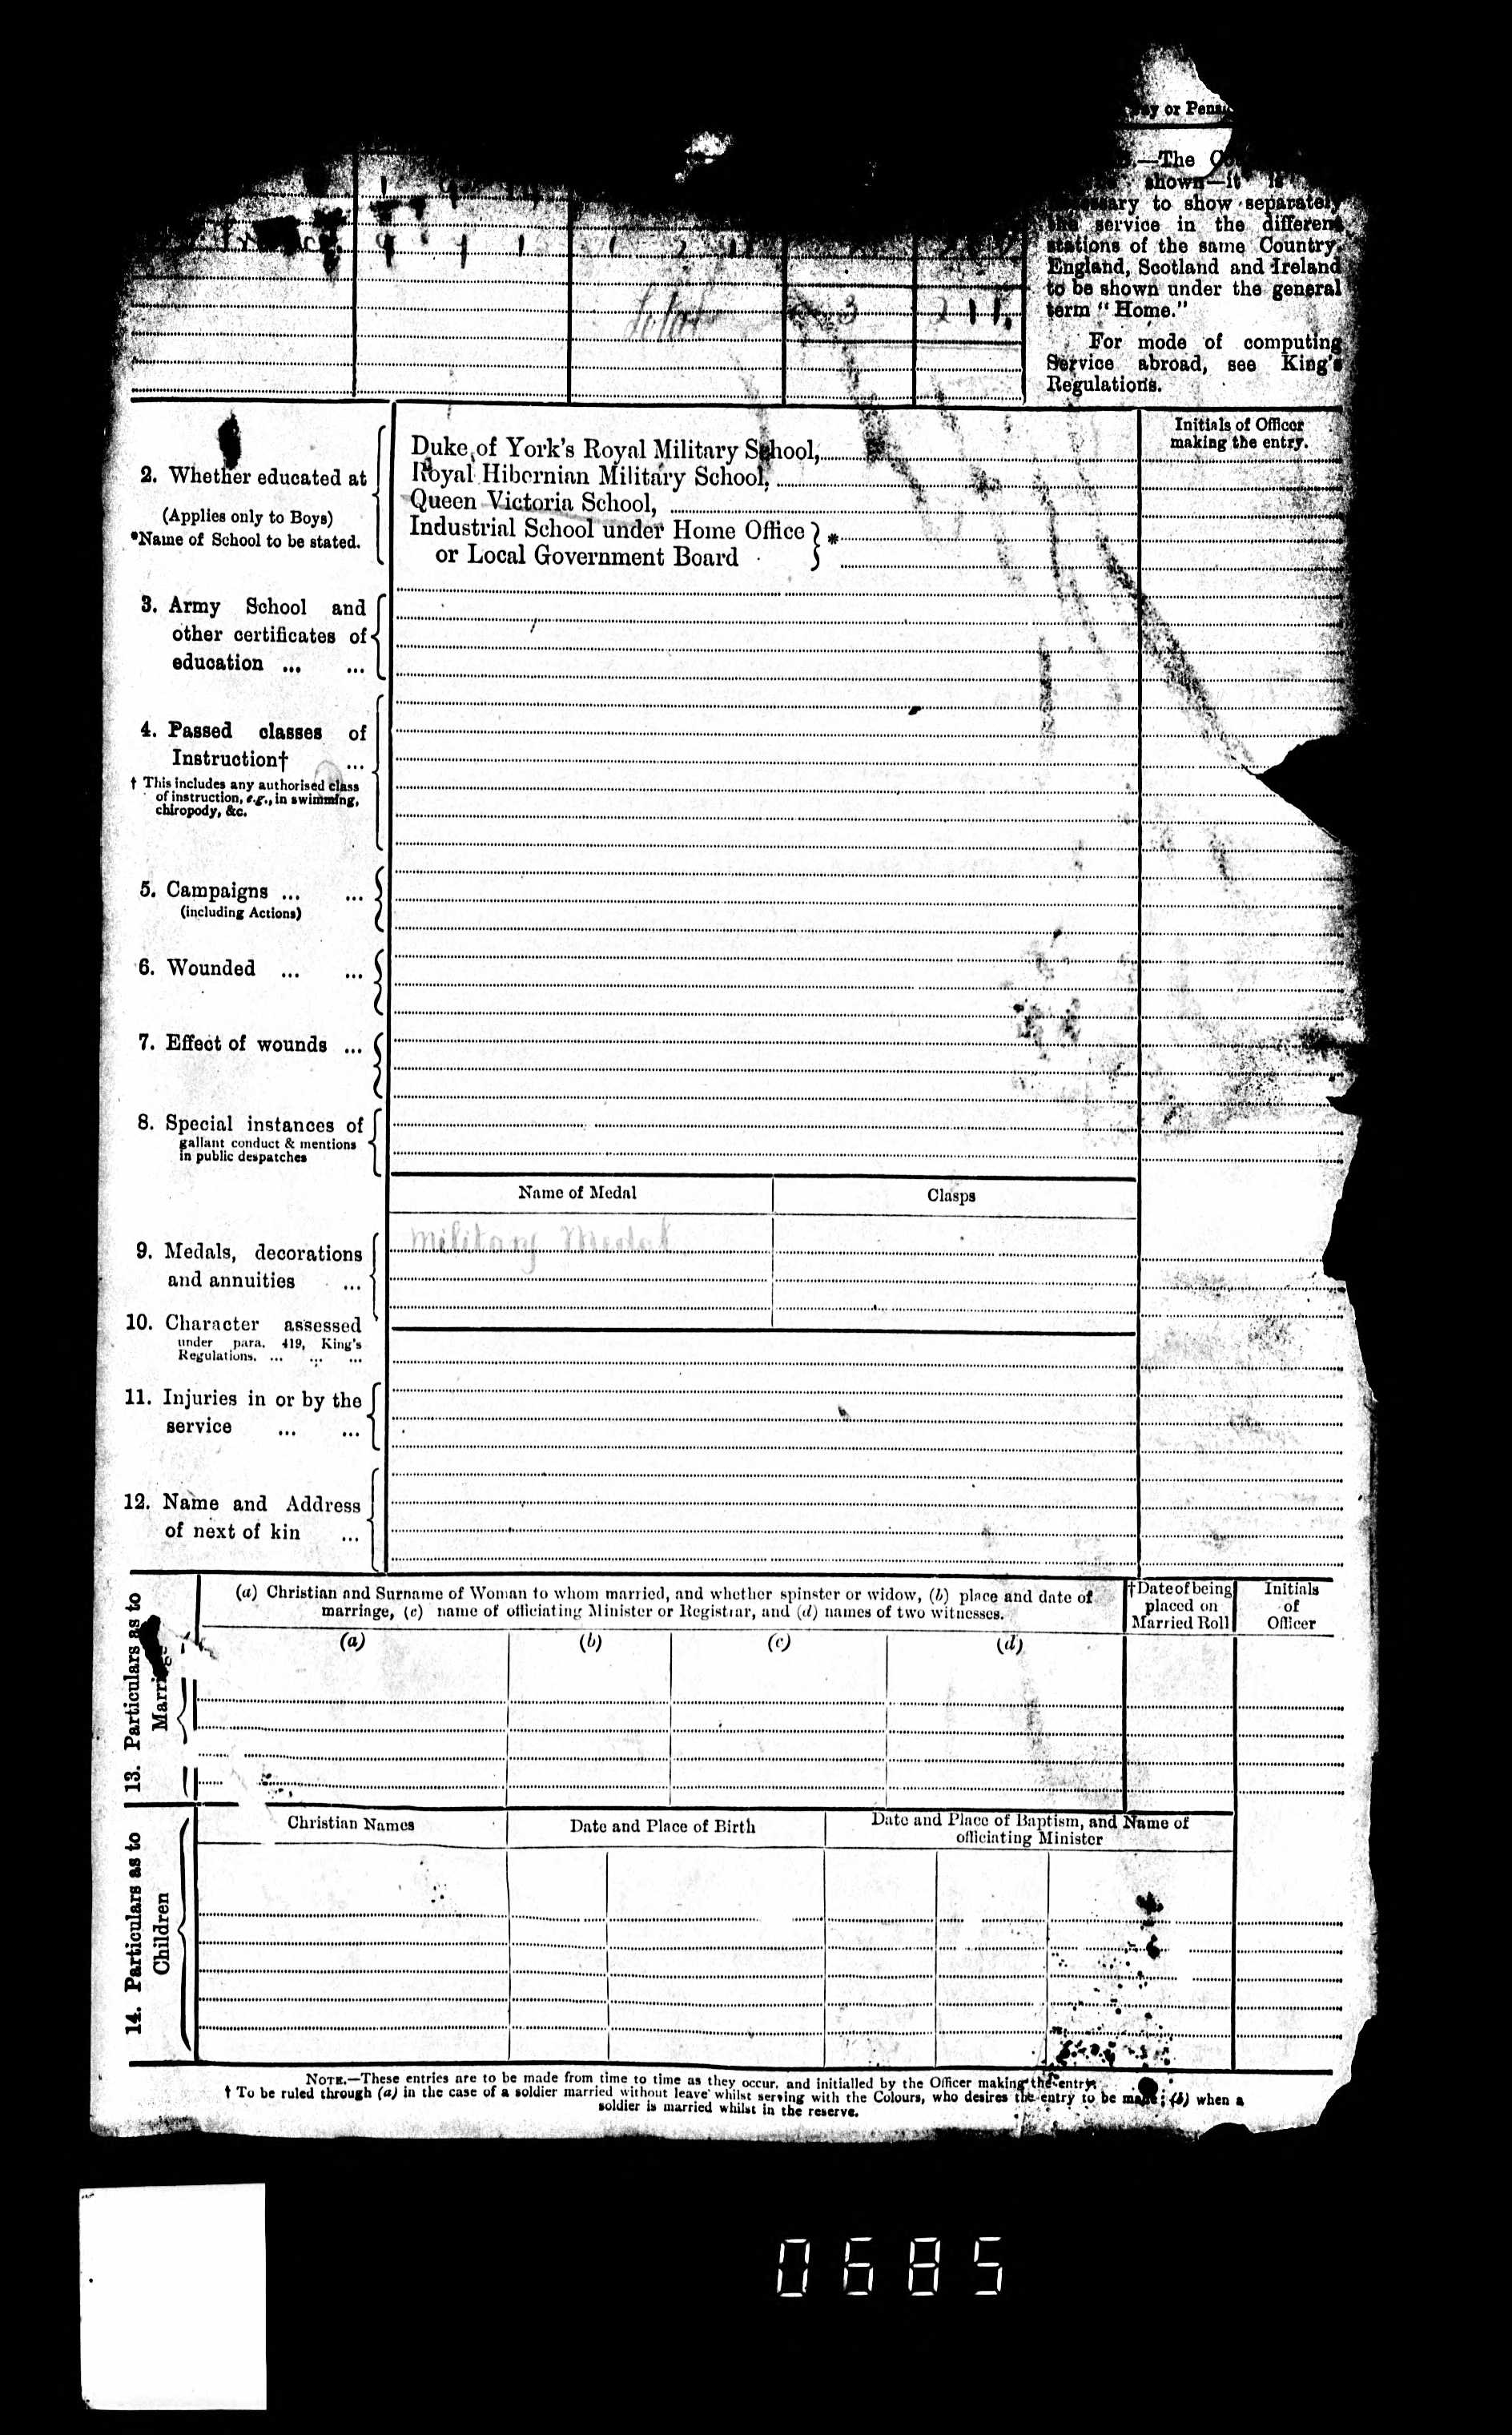 or
—The
shown—it is
to show separately
the service in the different
stations of the same Country,
England, Scotland and Ireland
to be shown under the general
term "Home."
For mode of computing
Service abroad, see King's
Regulations.
Total 3 211.
Initials of Officer
making the entry.
2. Whether educated at
(Applies only to Boys)
*Name of School to be stated.
Duke of York's Royal Military School,
Royal Hibernian Military School,
Queen Victoria School,
Industrial School under Home Office } *
or Local Government Board
3. Army School and
other certificates of
education ... ...
4. Passed classes of
Instruction† ...
† This includes any authorised class
of instruction, e.g., in swimming,
chiropody, &c.
5. Campaigns ... ...
(including Actions)
6. Wounded ... ...
7. Effect of wounds ...
8. Special instances of
gallant conduct & mentions
in public despatches
Name of Medal Clasps
Military Medal
9. Medals, decorations
and annuities ...
10. Character assessed
under para. 419, King's
Regulations. ... ... ...
11. Injuries in or by the
service ... ...
12. Name and Address
of next of kin ...
13. Particulars as to
Marriage
(a) Christian and Surname of Woman to whom married, and whether spinster or widow, (b) place and date of
marriage, (c) name of officiating Minister or Registrar, and (d) names of two witnesses.
†Date of being
placed on
Married Roll
Initials
of
Officer
(a) (b) (c) (d)
14. Particulars as to
Children
Christian Names Date and Place of Birth
Date and Place of Baptism, and Name of
officiating Minister
NOTE.—These entries are to be made from time to time as they occur, and initialled by the Officer making the entry.
† To be ruled through (a) in the case of a soldier married without leave whilst serving with the Colours, who desires the entry to be made; (b) when a
soldier is married whilst in the reserve.
0685